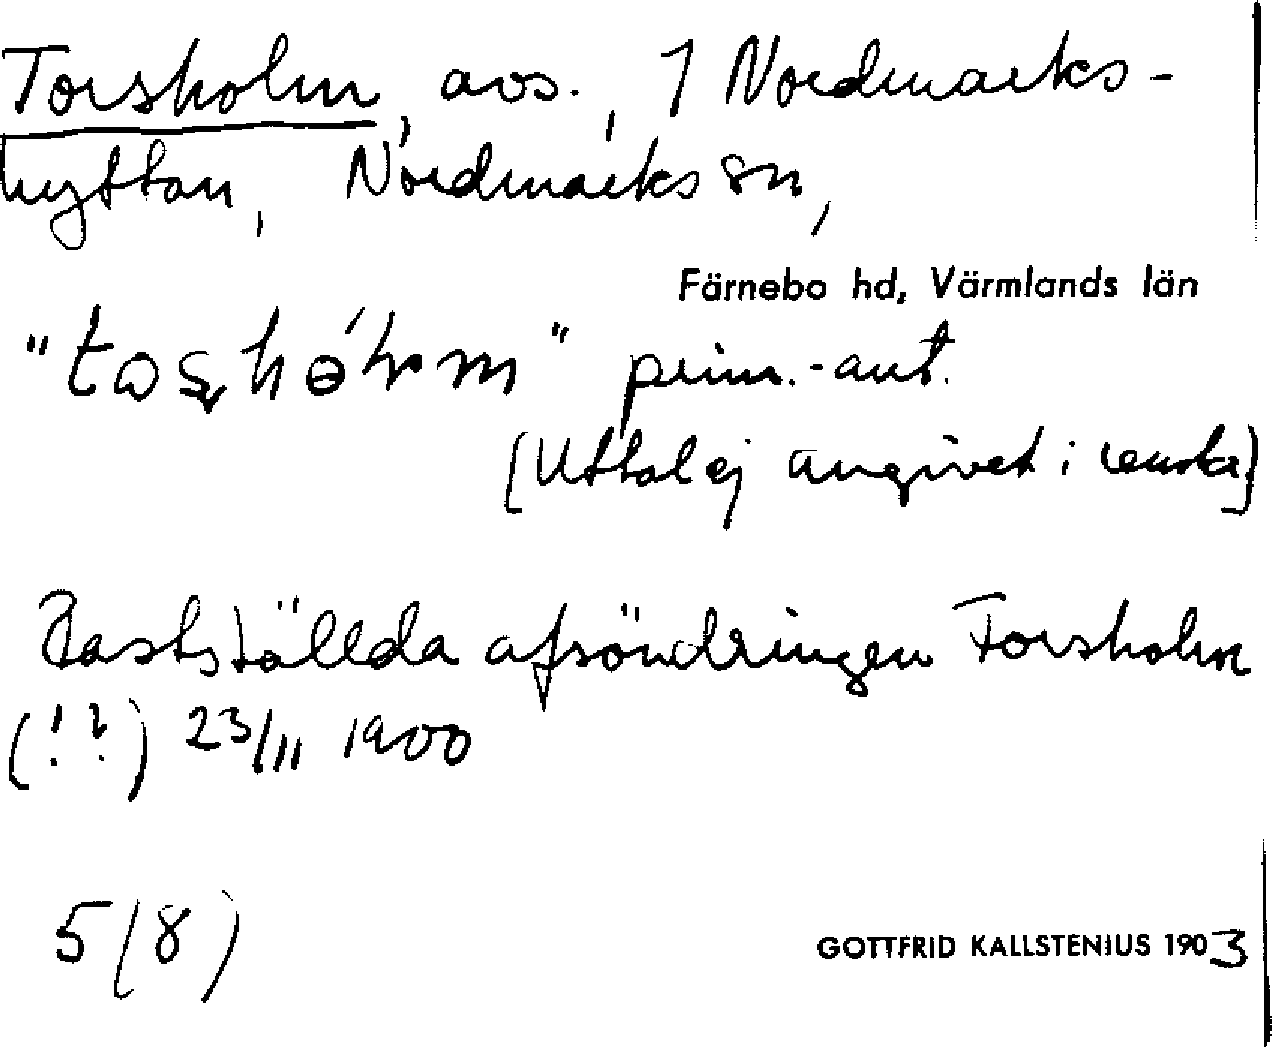 Torsholm, avs., 1 Nordmarks-
hyttan, Nordmarks sn,
Färnebo hd, Värmlands län
"tosho´hm" prim.-ant.
[Uttal ej angivet i renskr.]
Fastställda afsöndringen Torsholm
(!?) 23/11 1900
5(8)
GOTTFRID KALLSTENIUS 1903